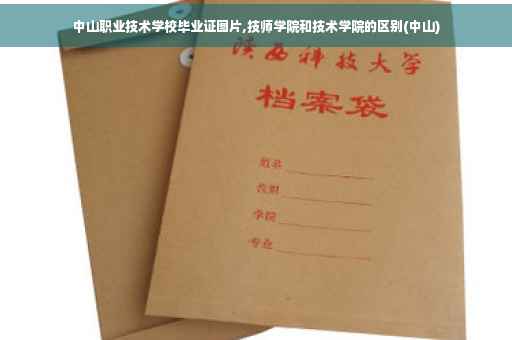 中山职业技术学校毕业证图片,技师学院和技术学院的区别(中山)
陕西科技大学
档案袋
姓名
学院
专业